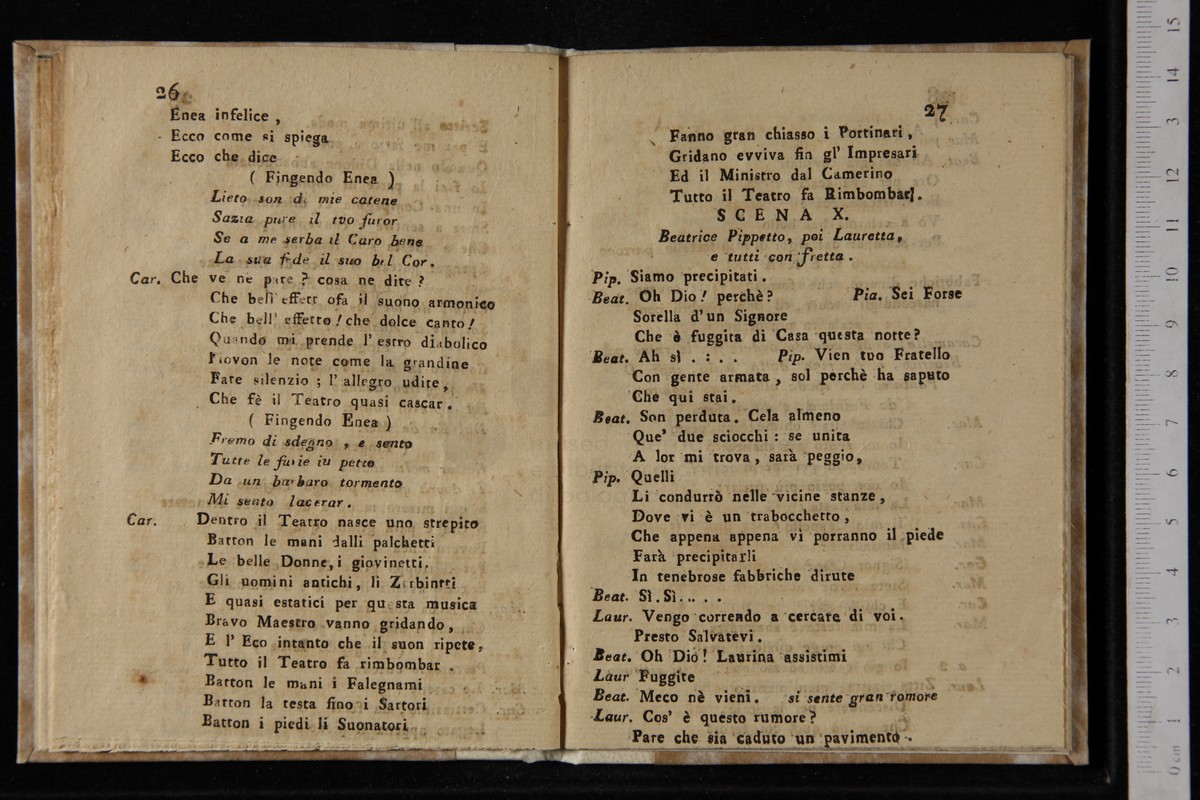 26
Enea infelice ,
Ecco come si spiega
Ecco che dice
( Fingendo Enea )
Lieto son di mie catene
Sazia pure il tvo furor
Se a me serba il Caro bene
La sua fede il suo bel Cor.
Car. Che ve ne pare ? cosa ne dite ?
Che bell' effett ofa il suono armonico
Che bell' effetto ! che dolce canto !
Quando mi prende l' estro diabolico
Piovon le note come la grandine
Fate silenzio ; l' allegro udite ,
Che fè il Teatro quasi cascar .
( Fingendo Enea )
Fremo di sdegno , e sento
Tutte le furie in petto
Da un barbaro tormento
Mi sento lacerar .
Car. Dentro il Teatro nasce uno strepito
Batton le mani dalli palchetti
Le belle Donne, i giovinetti.
Gli uomini antichi, li Zerbinetti
E quasi estatici per questa musica
Bravo Maestro vanno gridando ,
E l' Eco intanto che il suon ripete,
Tutto il Teatro fa rimbombar .
Batton le mani i Falegnami
Batton la testa fino i Sartori
Batton i piedi li Suonatori
27
Fanno gran chiasso i Portinari ,
Gridano evviva fin gl' Impresari
Ed il Ministro dal Camerino
Tutto il Teatro fa Rimbombar.
SCENA X.
Beatrice Pippetto, poi Lauretta,
e tutti con fretta .
Pip. Siamo precipitati .
Beat. Oh Dio ! perchè ? Pia. Sei Forse
Sorella d' un Signore
Che è fuggita di Casa questa notte?
Beat. Ah sì . : . . Pip. Vien tuo Fratello
Con gente armata , sol perchè ha saputo
Che qui stai .
Beat. Son perduta . Cela almeno
Que' due sciocchi : se unita
A lor mi trova , sarà peggio,
Pip. Quelli
Li condurrò nelle vicine stanze ,
Dove vi è un trabocchetto ,
Che appena appena vi porranno il piede
Farà precipitarli
In tenebrose fabbriche dirute
Beat. Sì . Sì . . . . .
Laur. Vengo correndo a cercare di voi.
Presto Salvatevi .
Beat. Oh Dio ! Laurina assistimi
Laur Fuggite
Beat. Meco nè vieni . si sente gran romore
Laur. Cos' è questo rumore ?
Pare che sia caduto un pavimento .
0 cm 1 2 3 4 5 6 7 8 9 10 11 12 3 14 15